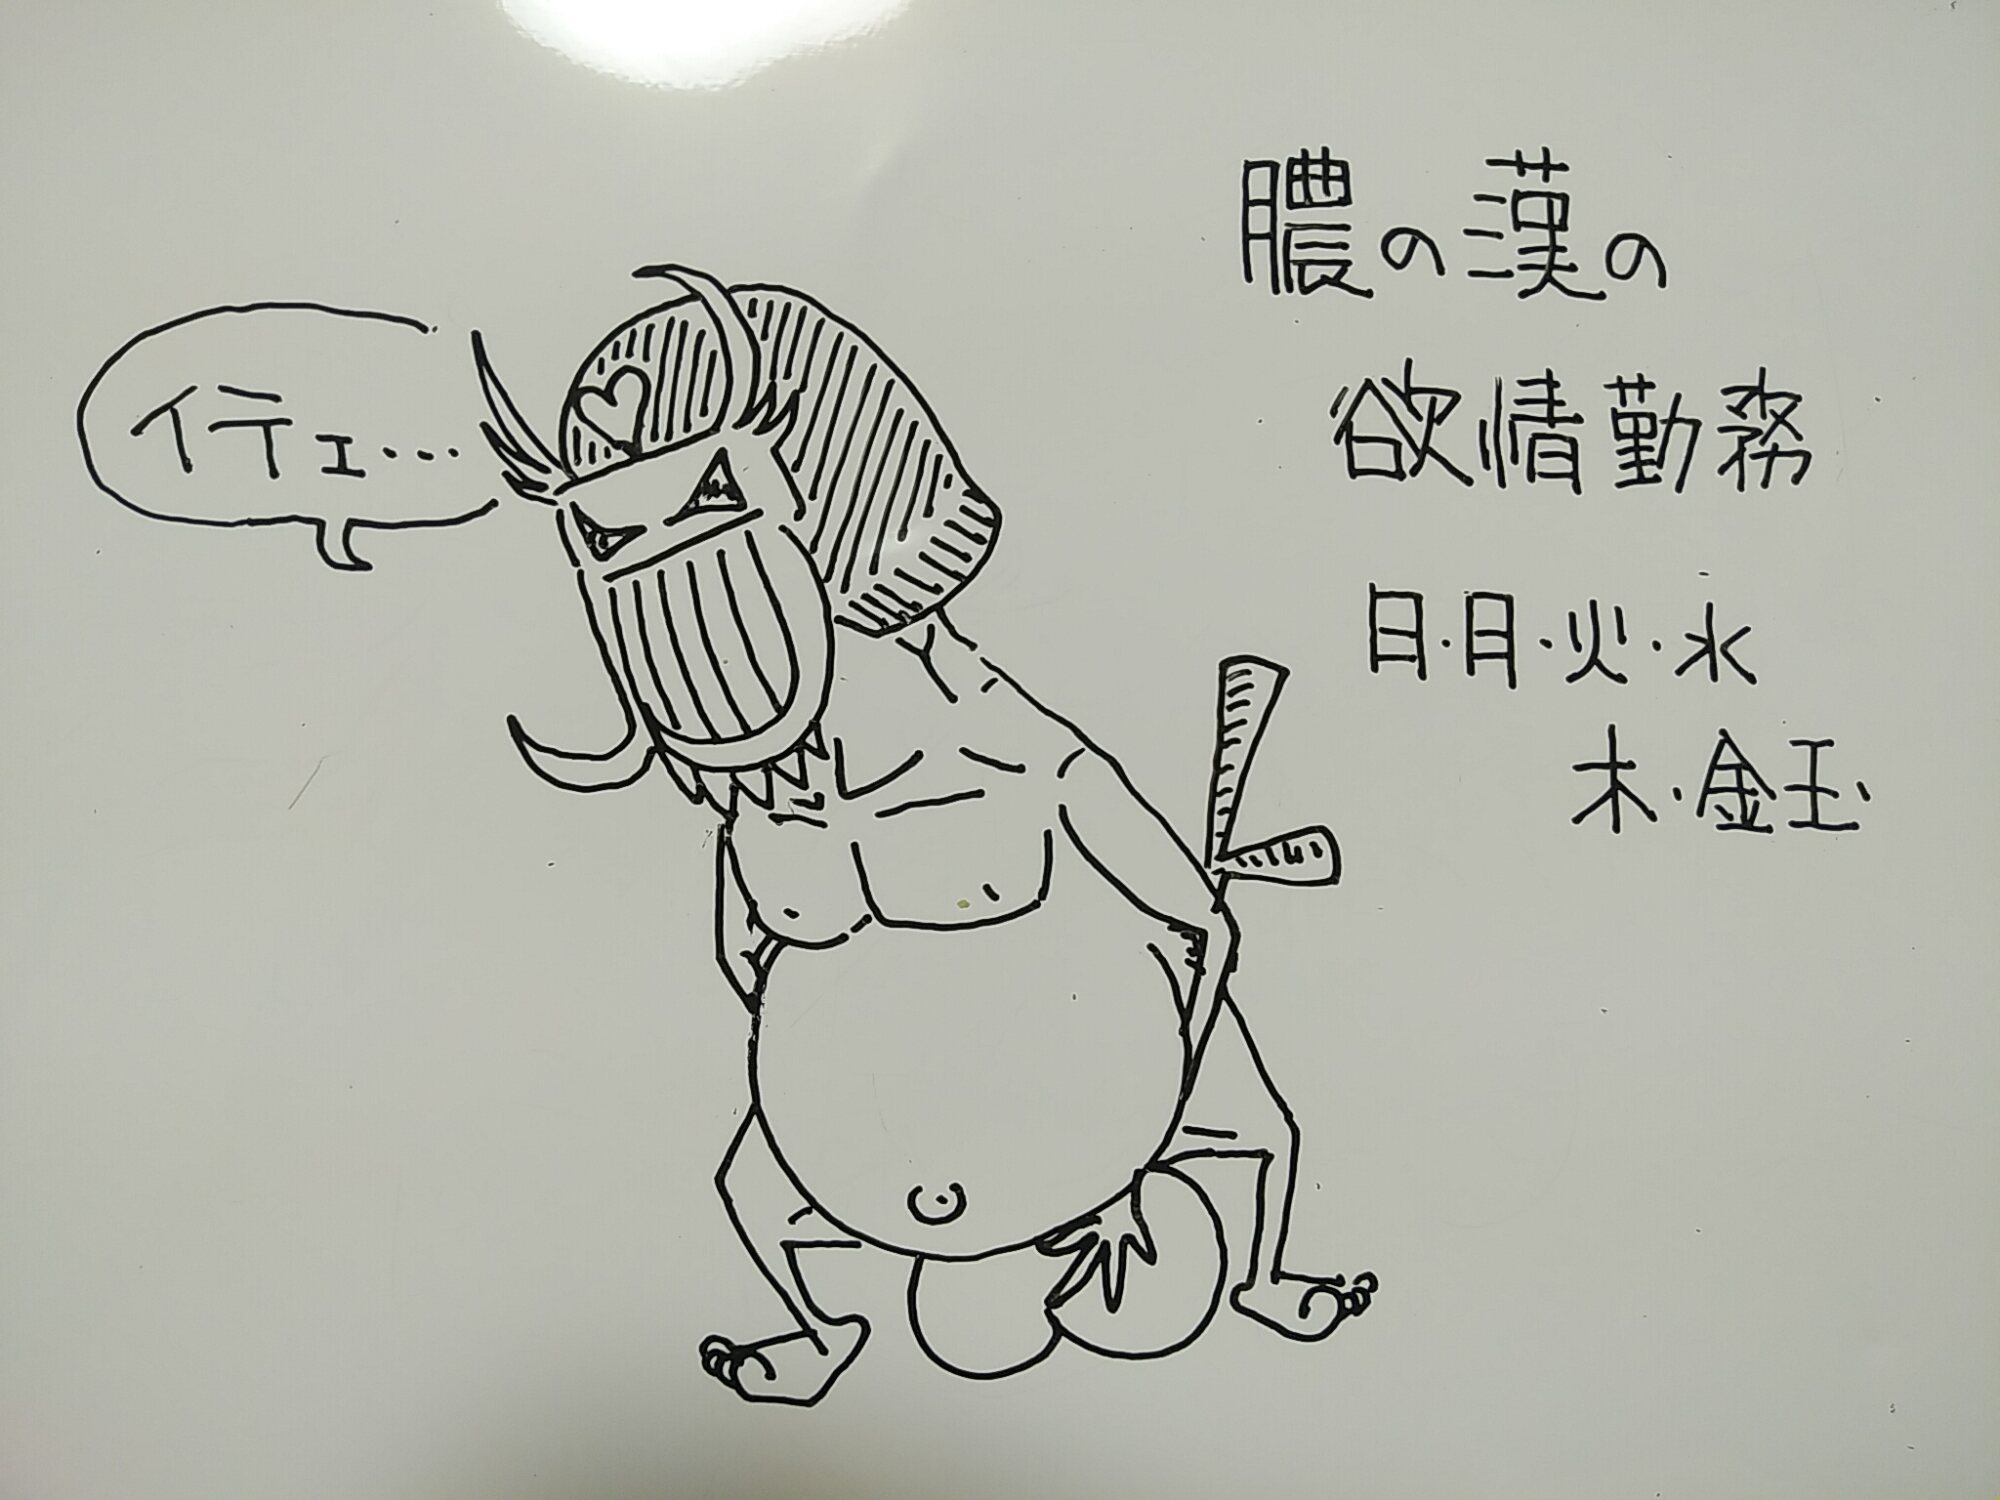 イテェ…
膿の漢の
欲情勤務
日・月・火・水
木・金玉